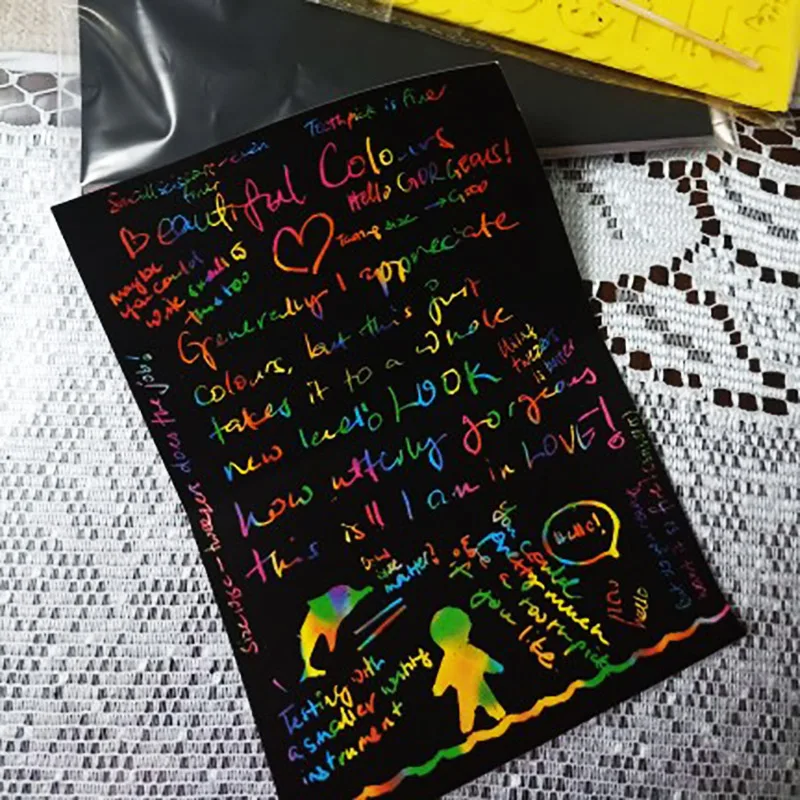 Toothpick is finer
Small scissors - even
finer
Beautiful Colours
Hello GORGEOUS!
Maybe
you could
write smaller
this too
Testing size → Good
Generally I appreciate
colours, but this just
takes it to a whole
new level! LOOK
Using
tweezers
is better
how utterly gorgeous
this is!! I am in LOVE!
Size wise - tweezers does the job!
Does size
matter?
Or you could
pretty much
use a toothpick
if you like.
Hello!
hello
Testing with
a smaller writing
instrument